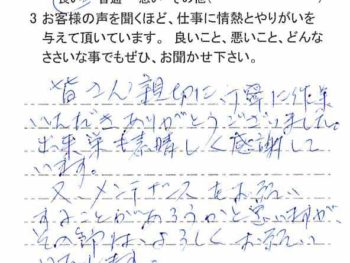 3 お客様の声を聞くほど、仕事に情熱とやりがいを
与えて頂いています。 良いこと、悪いこと、どんな
ささいな事でもぜひ、お聞かせ下さい。
皆さん親切に、丁寧に作業
いただきありがとうございました。
出来栄も素晴しく感謝して
います。
又、メンテナンスをお願い
することがあろうかと思いますが、
その節は、よろしくお願い
いたします。